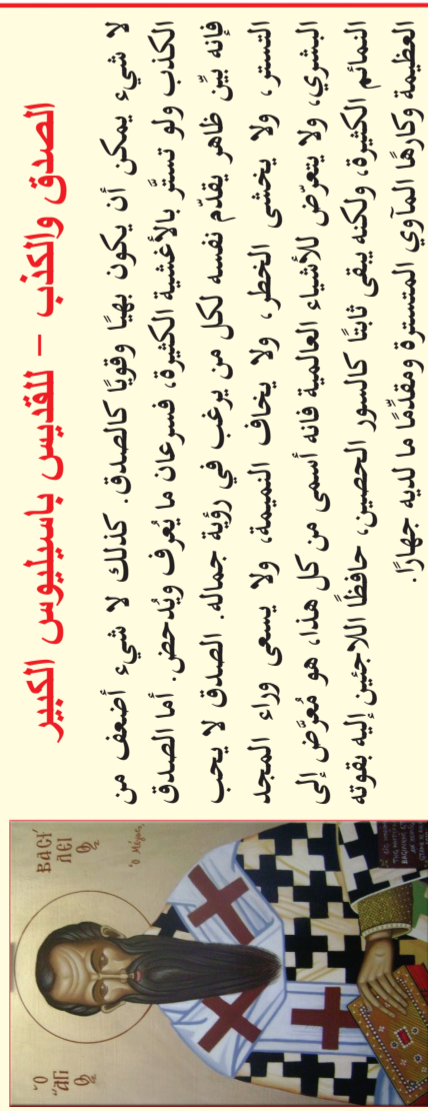 الصدق والكذب – للقديس باسيليوس الكبير
لا شيء يمكن أن يكون بهيًا وقويًا كالصدق. كذلك لا شيء أضعف من
الكذب ولو تستَّر بالأغشية الكثيرة، فسرعان ما يُعرف ويُدحض. أما الصدق
فإنه بيِّن ظاهر يقدّم نفسه لكل من يرغب في رؤية جماله. الصدق لا يحب
التستر، ولا يخشى الخطر، ولا يخاف النميمة، ولا يسعى وراء المجد
البشري، ولا يتعرّض للأشياء العالمية فانه أسمى من كل هذا، هو مُعرَّض إلى
النمائم الكثيرة، ولكنه يبقى ثابتًا كالسور الحصين، حافظًا اللاجئين إليه بقوته
العظيمة وكارهًا المآوي المتسترة ومقدِّمًا ما لديه جهارًا.
Ὁ
ἍΓΙ
ΟC
ΒΑCΙ
ΛΕΙ
ΟC
ὁ Μέγας